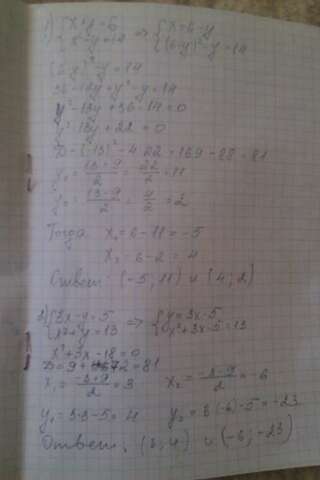 1) { x+y=6 => { x=6-y
{ x²-y=14 { (6-y)²-y=14
(6-y)²-y=14
36-12y+y²-y=14
y²-13y+36-14=0
y²-13y+22=0
D=(-13)²-4·22=169-88=81
y₁=(13+9)/2=22/2=11
y₂=(13-9)/2=4/2=2
Тогда x₁=6-11=-5
x₂=6-2=4
Ответ: (-5; 11) и (4; 2)
2) { 3x-y=5 => { y=3x-5
{ x²+y=13 { x²+3x-5=13
x²+3x-18=0
D=9+72=81
x₁=(-3+9)/2=3 x₂=(-3-9)/2=-6
y₁=3·3-5=4 y₂=3·(-6)-5=-23
Ответ: (3; 4) и (-6; -23)